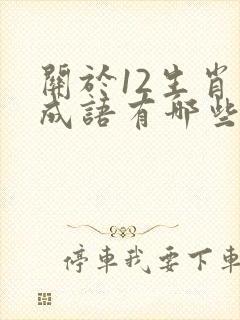 關於12生肖
成語有哪些
停車我要下車